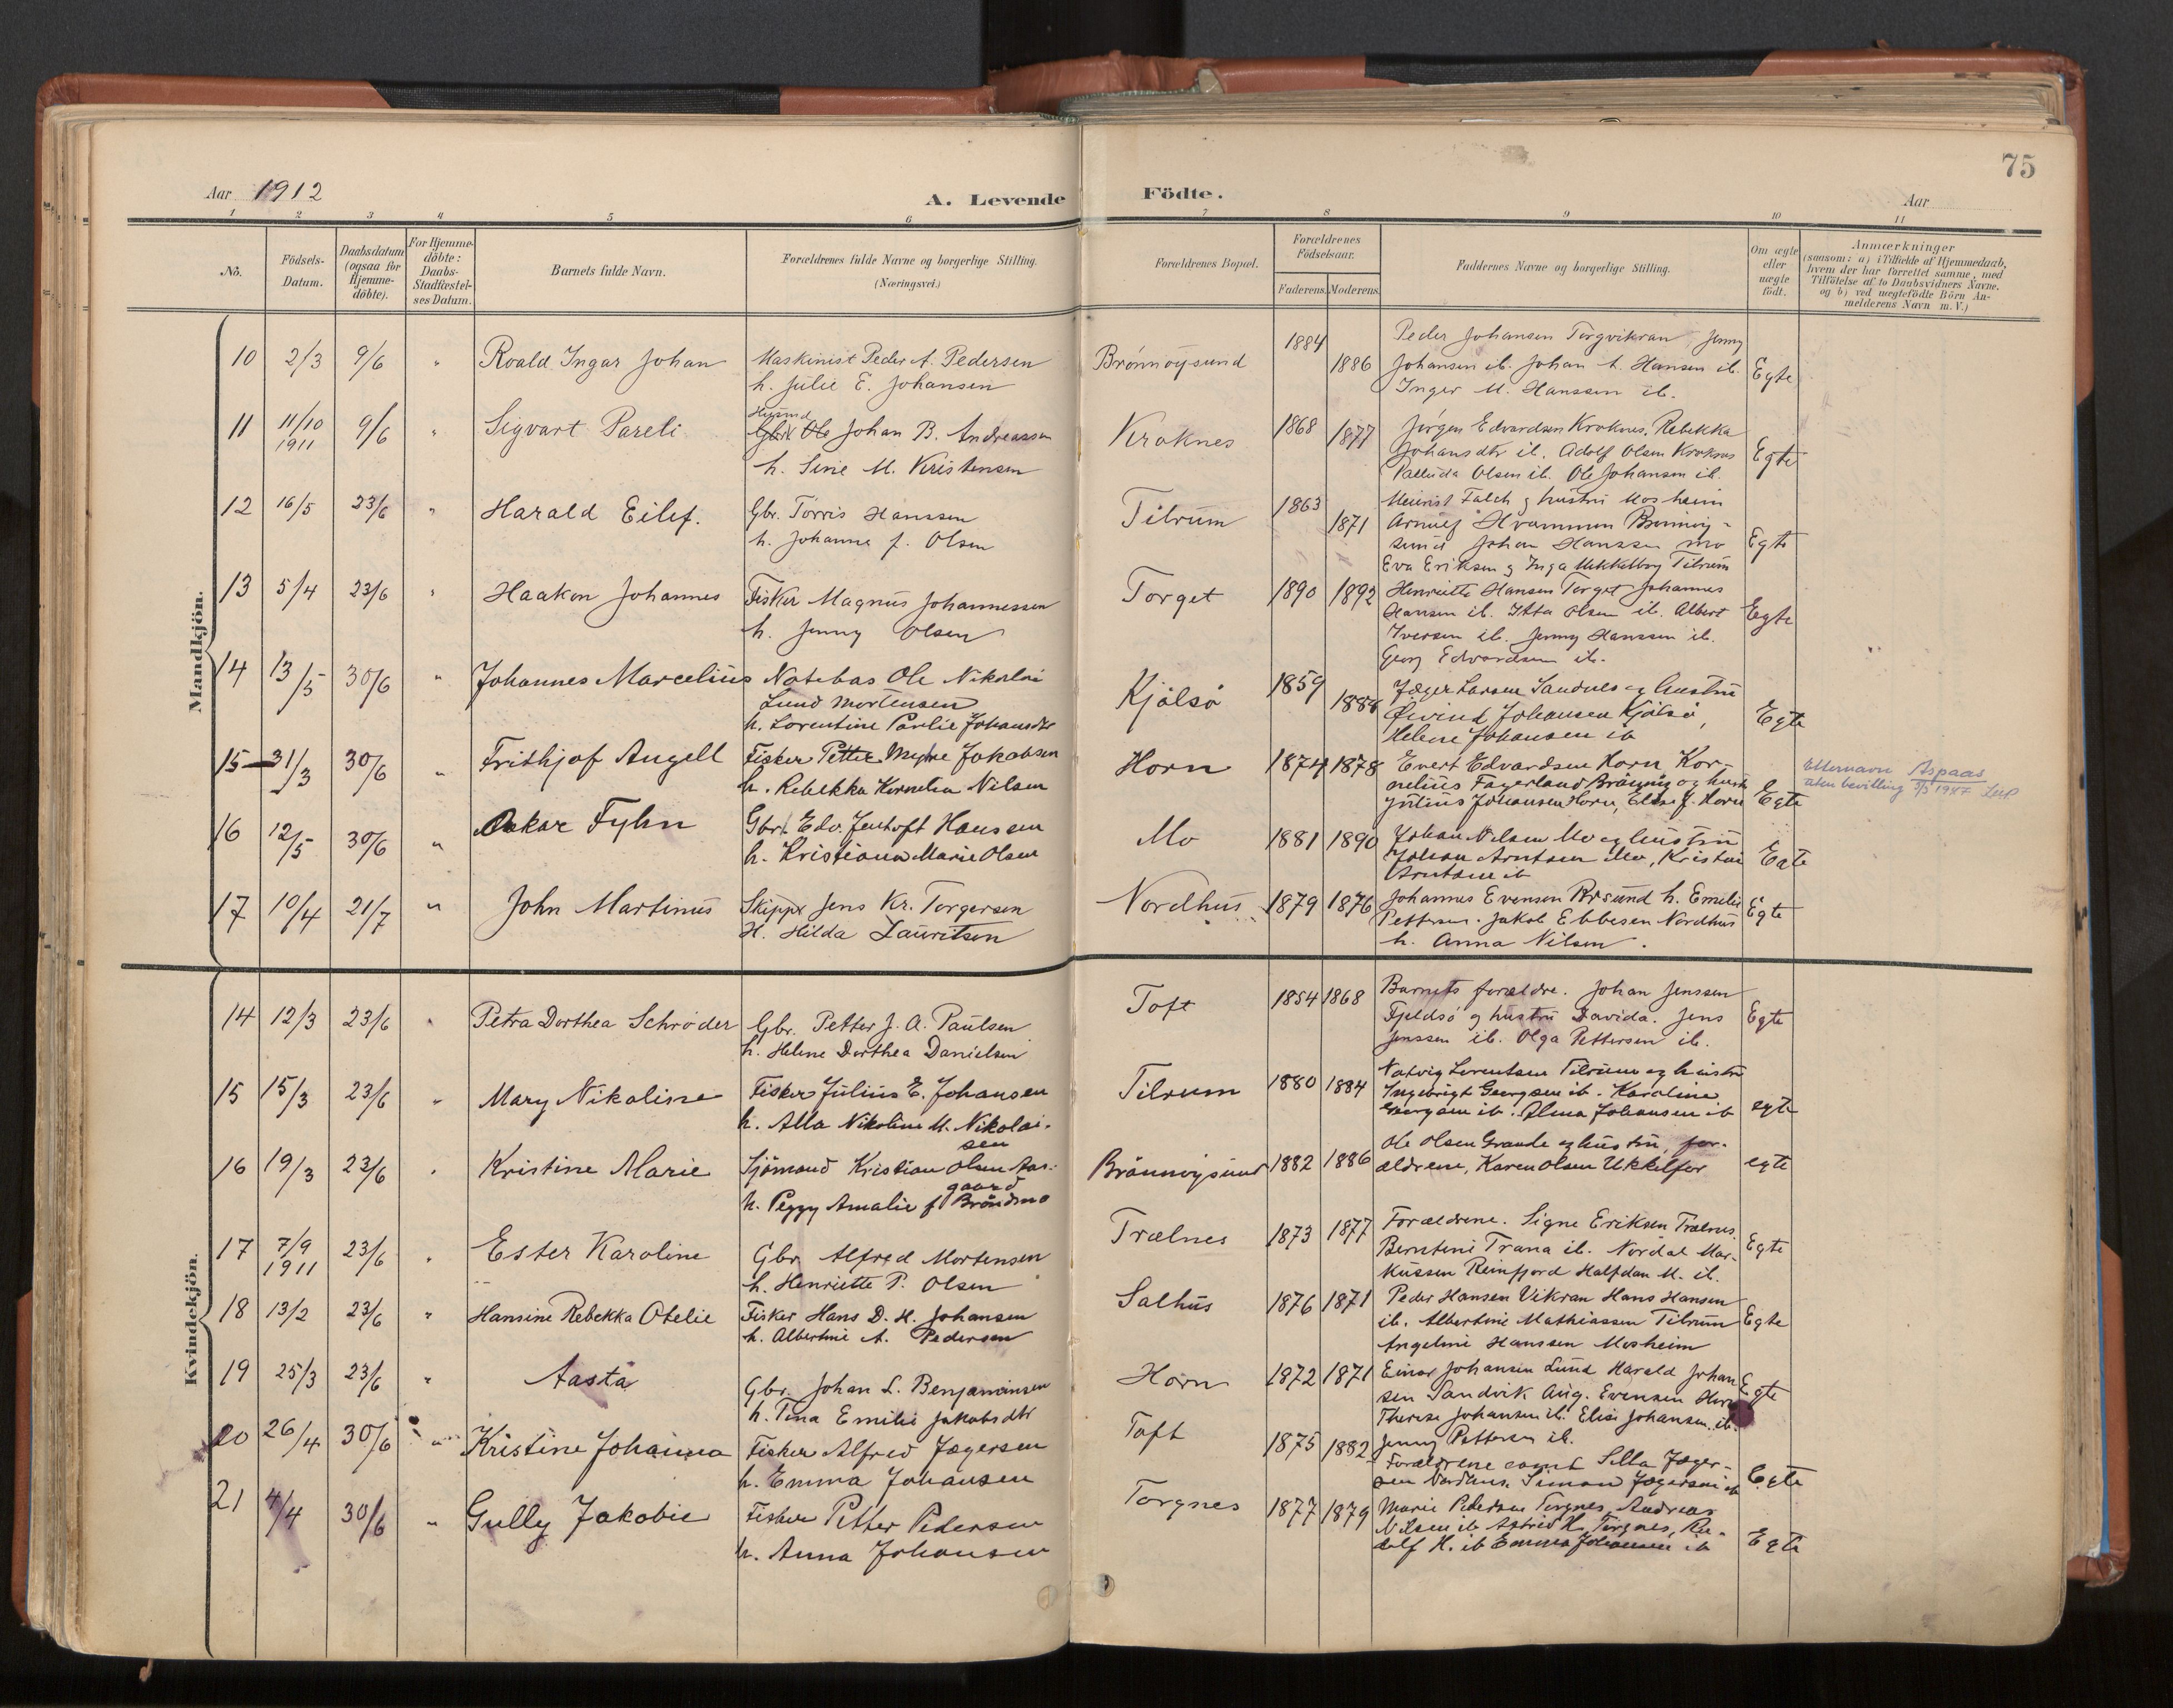 75
Aar 1912
A. Levende Födte.
Aar
1 2 3 4 5 6 7 8 9 10 11
No.
Födsels-
Datum.
Daabsdatum
(ogsaa for
Hjemme-
döbte).
For Hjemme-
döbte:
Daabs-
Stadfæstel-
ses Datum.
Barnets fulde Navn.
Forældrenes fulde Navne og borgerlige Stilling.
(Næringsvei.)
Forældrenes Bopæl.
Forældrenes
Födselsaar.
Faderens. Moderens.
Faddernes Navne og borgerlige Stilling.
Om ægte
eller
uægte
födt.
Anmærkninger
(saasom: a) i Tilfælde af Hjemmedaab,
hvem der har forrettet samme, med
Tilföielse af to Daabsvidners Navne.
og b) ved uægtefödte Börn An-
melderens Navn m. V.)
Mandkjön.
10 2/3 9/6 " Roald Ingar Johan
Maskinist Peder A. Pedersen
h. Julie E. Johansen
Brönnöysund 1884 1886
Peder Johansen Torgvikran, Jenny
Johansen ib. Johan A. Hansen ib.
Inger M. Hanssen ib.
Egte
11 11/10 1911 9/6 " Sigvart Pareli
Husmd
Gbr. Ole Johan B. Andreassen
h. Sine M. Kristensen
Kroknes 1868 1877
Jørgen Edvardsen Kroknes. Rebekka
Johansdtr ib. Adolf Olsen Kroknes
Palluda Olsen ib. Ole Johansen ib.
Egte
12 16/5 23/6 " Harald Eilef.
Gbr. Torris Hanssen
h. Johanna J. Olsen
Tilrum 1863 1871
Meierist Falch og hustru Mosheim
Arnulf Hvammen Brönnöy-
sund Johan Hanssen Mo
Eva Eriksen og Inga Mekkelborg Tilrum
Egte
13 5/4 23/6 " Haakon Johannes
Fisker Magnus Johannessen
h. Jenny Olsen
Torget 1890 1892
Henriette Hansen Torget Johannes
Hansen ib. Itta Olsen ib. Albert
Iversen ib. Jenny Hanssen ib.
Georg Edvardsen ib.
Egte
14 13/5 30/6 " Johannes Marcelius
Notebas Ole Nikolai
Lund Mortensen
h. Lorentine Paulie Johansdtr
Kjölsö 1859
Jæger Larsen Sandnes og hustru
Öivind Johansen Kjölsö,
Helene Johansen ib
Egte
15 31/3 30/6 " Frithjof Angell
Fisker Petter Meyer Jakobsen
h. Rebekka Kornelia Nilsen
Horn 1874 1878
Evert Edvardsen Horn Kor-
nelius Fagerland Brönnöy og hustr
Julius Johansen Horn, Elise J. Horn
Egte
Etternavn Aspaas
uten bevilling 3/5 1947
16 12/5 30/6 " Oskar Fyhn
Gbr. Edv. Jentoft Hanssen
h. Kristiana Marie Olsen
Mo 1881 1890
Johan Nilsen Mo og hustru
Johan Arntsen Mo, Kristine
Arntsen ib
Egte
17 10/4 21/7 " John Martinus
Skipper Jens Kr. Torgersen
H. Hilda Lauritsen
Nordhus 1879 1876
Johannes Evensen Brsund h. Emilie
Pettersen. Jakob Ebbesen Nordhus
h. Anna Nilsen.
Egte
Kvindekjön.
14 12/3 23/6 " Petra Dorthea Schrøder
Gbr. Petter J. A. Paulsen
h. Helene Dorthea Danielsen
Toft 1854 1868
Barnets forældre. Johan Jenssen
Fjeldsö og hustru Davida. Jens
Jenssen ib. Olga Pettersen ib.
Egte
15 15/3 23/6 " Mary Nikoline
Fisker Julius E. Johansen
h. Alla Nikoline M. Nikolai-
sen
Tilrum 1880 1884
Natvig Lorentsen Tilrum og hustru
Ingebrigt Georgsen ib. Karoline
Georgsen ib. Alma Johansen ib
egte
16 19/3 23/6 " Kristine Marie
Sjömand Kristian Olsen Aar-
gaard
h. Peggy Amalie f Bröndmo
Brönnöysund 1882 1886
Ole Olsen Grande og hustru, for-
ældrene, Karen Olsen Ukkelfor
egte
17 7/9 1911 23/6 " Ester Karoline
Gbr. Alfred Mortensen
h. Henriette P. Olsen
Trælnes 1873 1877
Forældrene. Signe Eriksen Trælnes.
Berntine Trana ib. Nordal Mar-
kussen Reinfjord Halfdan M. ib.
Egte
18 13/2 23/6 " Hansine Rebekka Otelie
Fisker Hans D. H. Johansen
h. Albertine A. Pedersen
Salhus 1876 1871
Peder Hansen Vikran Hans Hansen
ib. Albertine Mathiassen Tilrum
Angeline Hanssen Mosheim
Egte
19 25/3 23/6 " Aasta
Gbr. Johan L. Benjaminsen
h. Tina Emilie Jakobsdtr
Horn 1872 1871
Einar Johansen Lund Harald Johan
sen Sandvik Aug. Evensen Horn
Therese Johansen ib. Elise Johansen ib.
Jenny Pettersen ib.
Egte
20 26/4 30/6 " Kristine Johanna
Fisker Alfred Jægersen
h. Emma Johansen
Toft 1875 1882
Forældrene samt Silla Jæger-
sen Nordhus. Simon Jægersen ib
Egte
21 4/4 30/6 " Gully Jakobie
Fisker Petter Pedersen
h. Anna Johansen
Torgnes 1877 1879
Marie Pedersen Torgnes, Andreas
Nilsen ib Astrid H. Torgnes, Ru-
dolf H. ib Emma Johansen ib
Egte